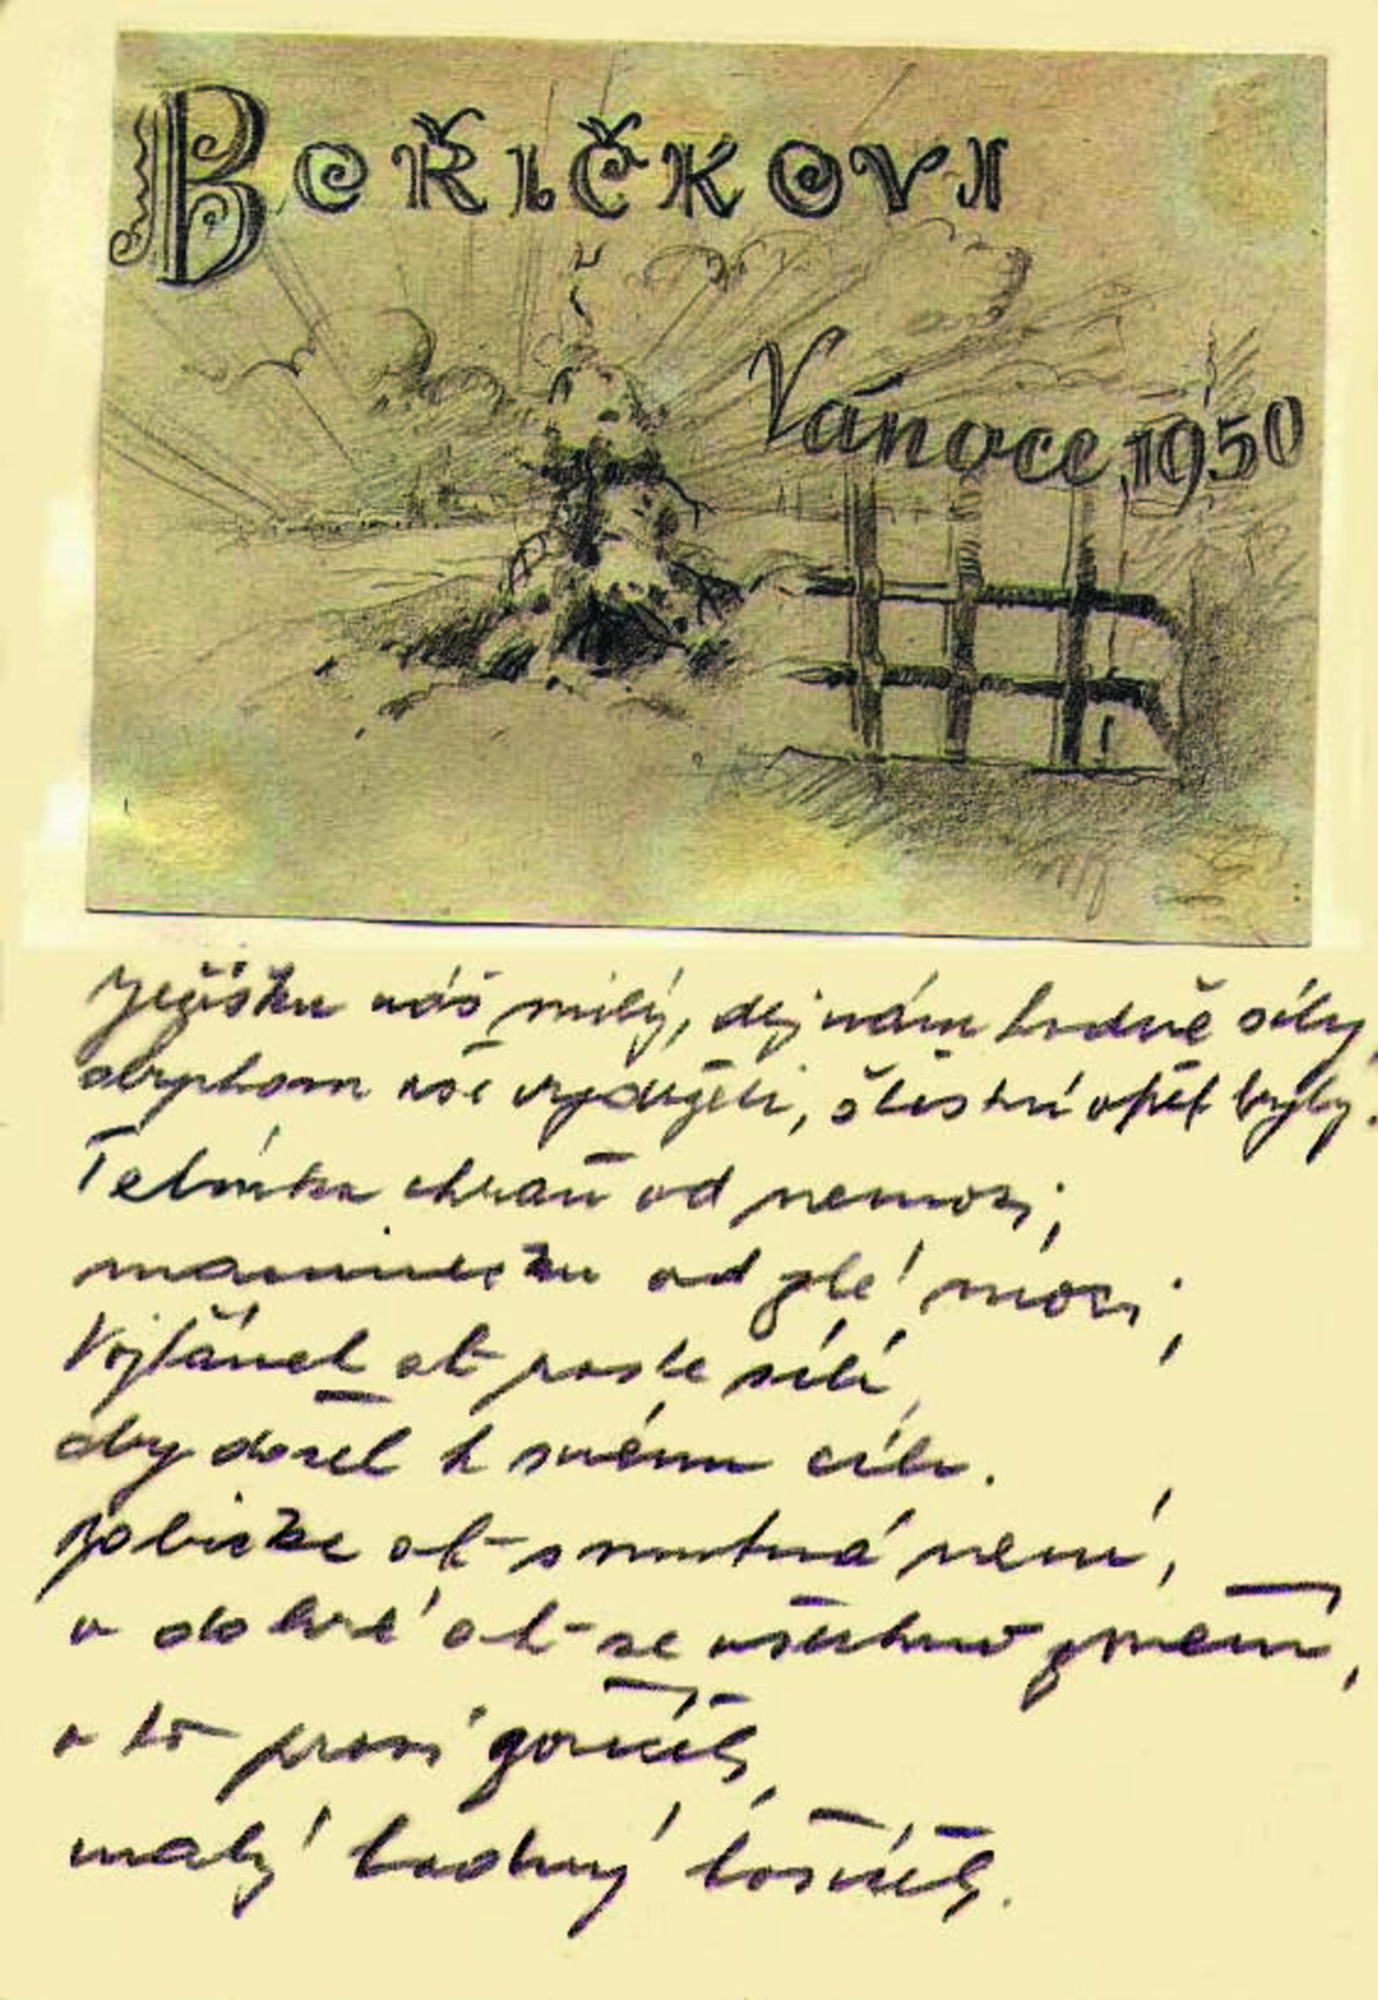 BOŘIČKOVI
Vánoce 1950
Ježíšku náš milý, dej nám hodně síly,
abychom vše vydrželi, šťastní opět byli.
Tatínka chraň od nemoci,
maminečku od zlé moci,
Vojtánek ať roste sílí,
aby došel k svému cíli.
Babička ať smutná není,
v dobré ať se všechno změní,
o to prosí
malý hodný